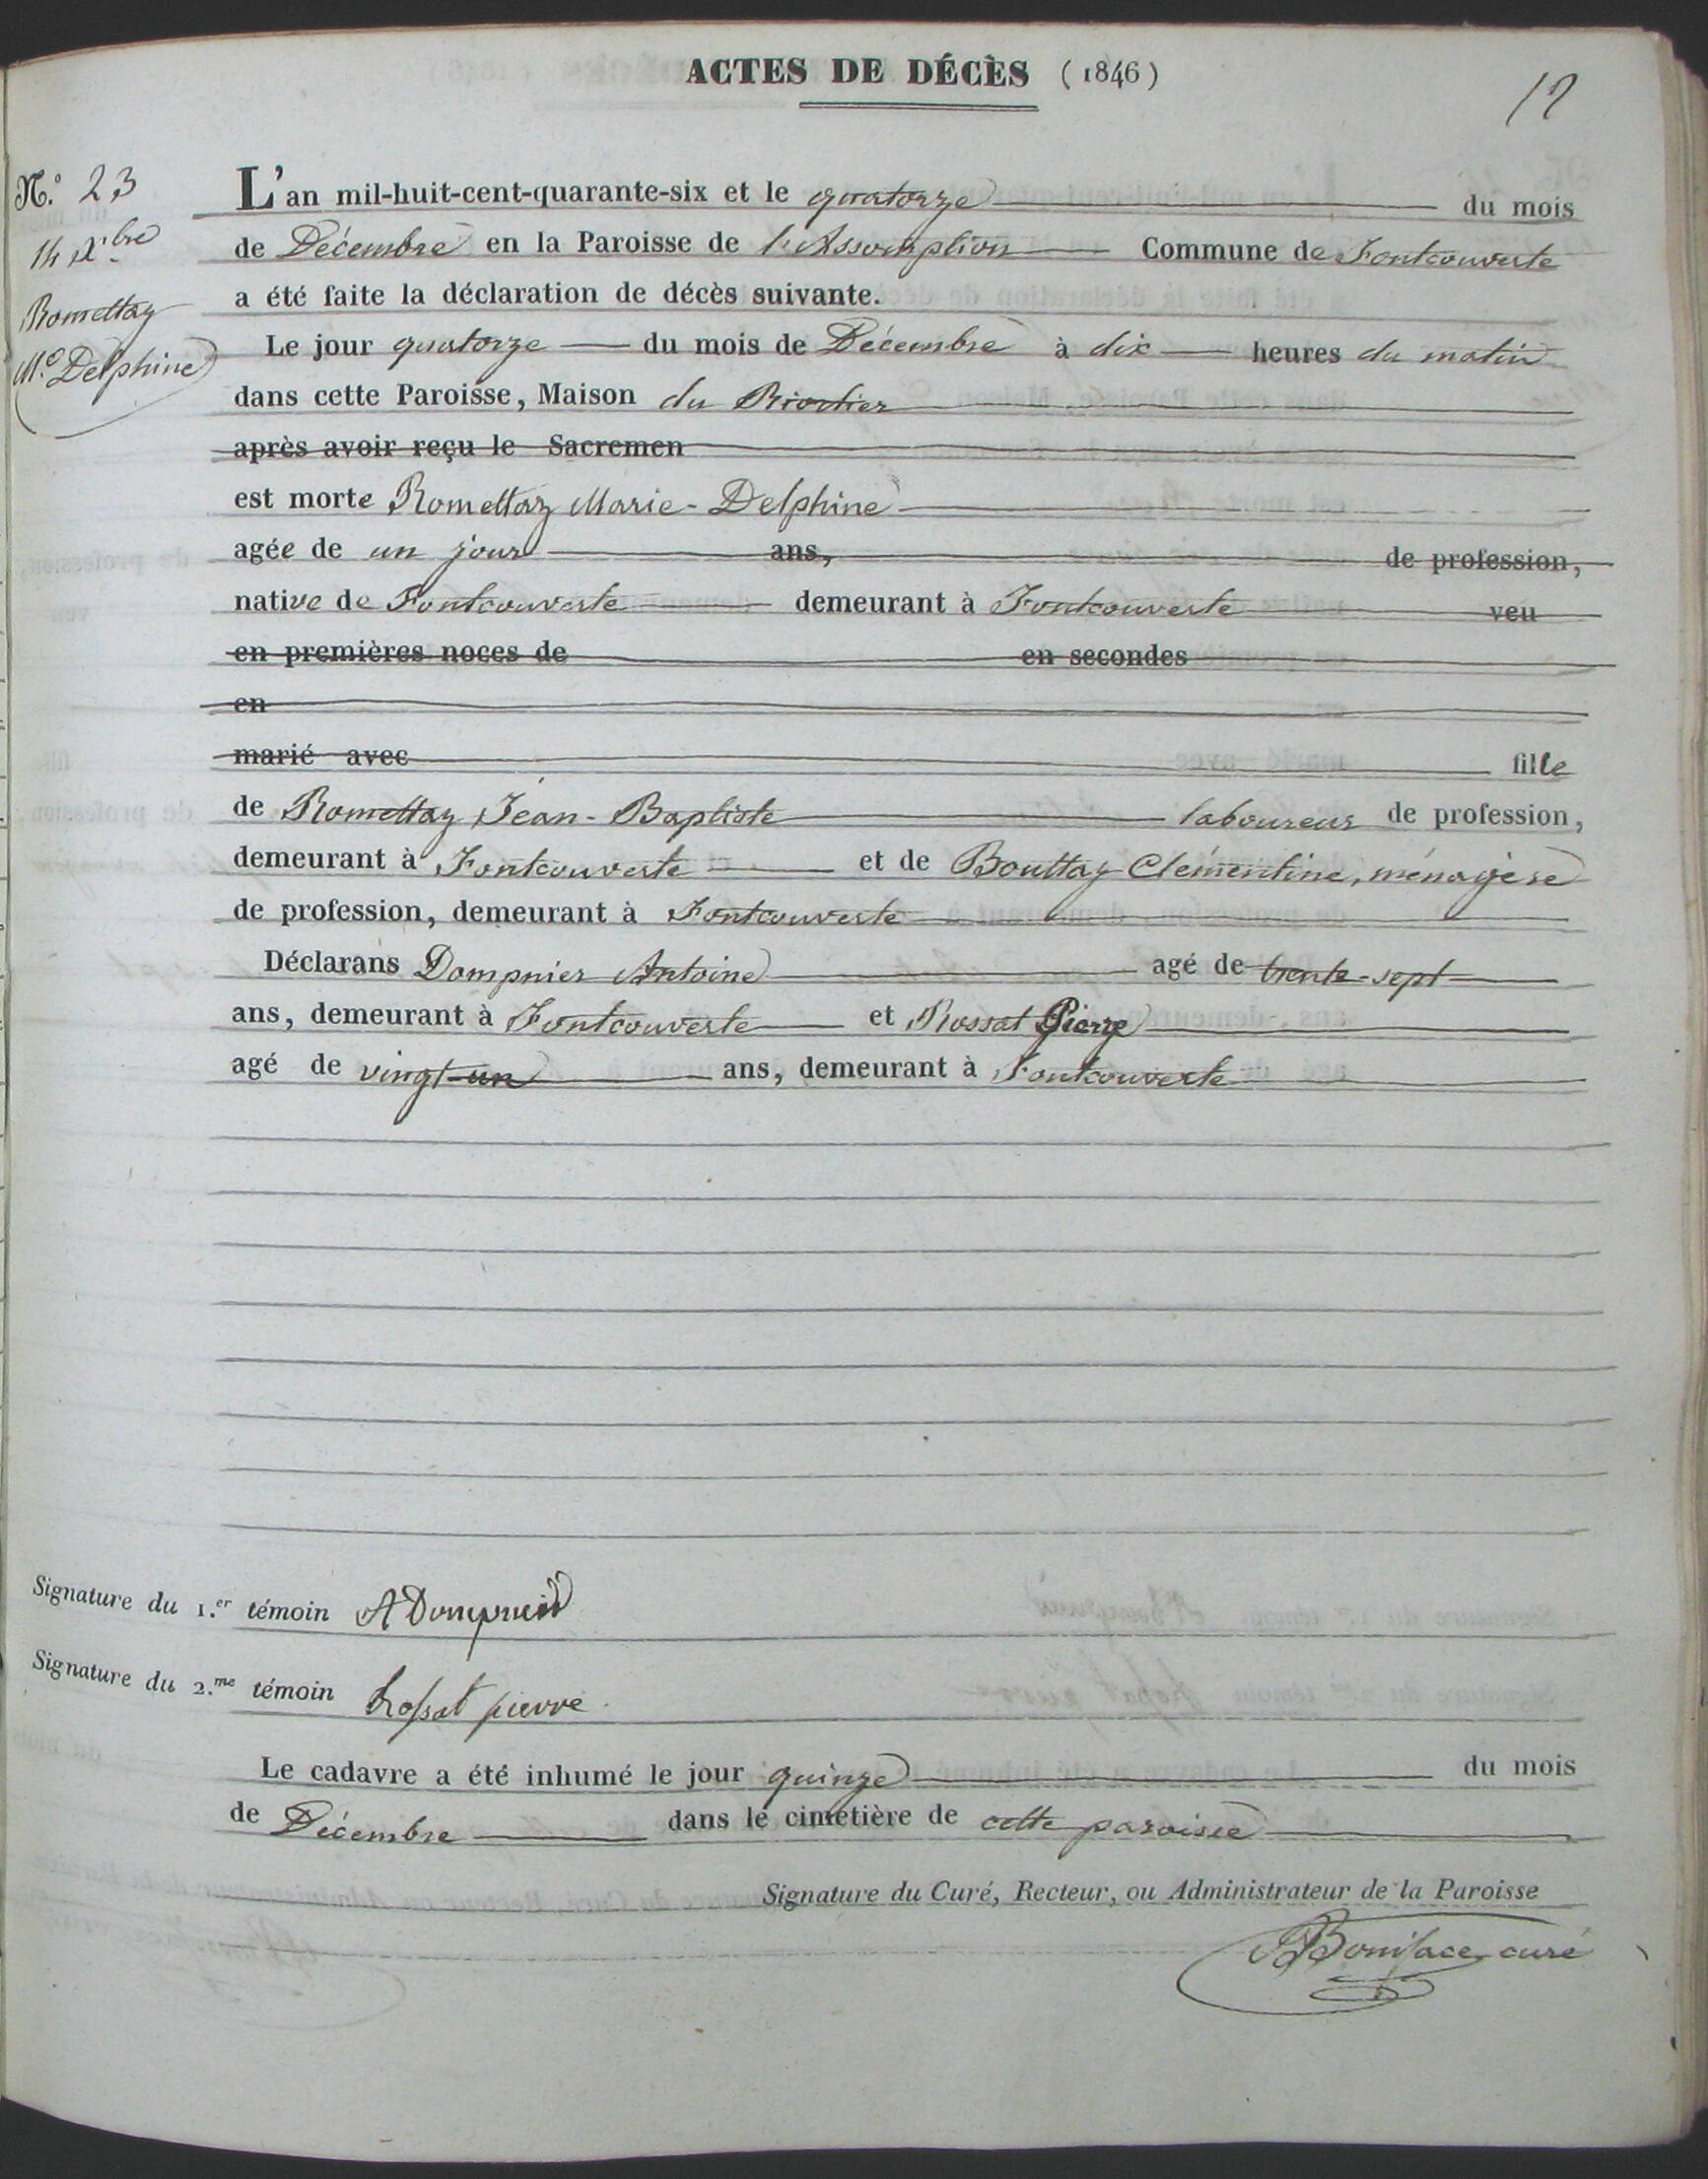 ACTES DE DÉCÈS (1846)
12
N.o 23
14 Xbre
Romettaz
Me Delphine
L'an mil-huit-cent-quarante-six et le quatorze du mois
de Décembre en la Paroisse de l'Assomption Commune de Fontcouverte
a été faite la déclaration de décès suivante.
Le jour quatorze du mois de Décembre à dix heures du matin
dans cette Paroisse, Maison du
après avoir reçu le Sacremen
est morte Romettaz Marie-Delphine
agée de un jour ans, de profession,
native de Fontcouverte demeurant à Fontcouverte veu
en premières noces de en secondes
en
marié avec fille
de Romettaz Jean-Baptiste laboureur de profession,
demeurant à Fontcouverte et de Bouttaz Clémentine, ménagère
de profession, demeurant à Fontcouverte
Déclarans Dompnier Antoine agé de trente-sept
ans, demeurant à Fontcouverte et Rossat Pierre
agé de vingt-un ans, demeurant à Fontcouverte
Signature du 1.er témoin A Dompnier
Signature du 2.me témoin Rossat pierre
Le cadavre a été inhumé le jour quinze du mois
de Décembre dans le cimetière de cette paroisse
Signature du Curé, Recteur, ou Administrateur de la Paroisse
Boniface curé